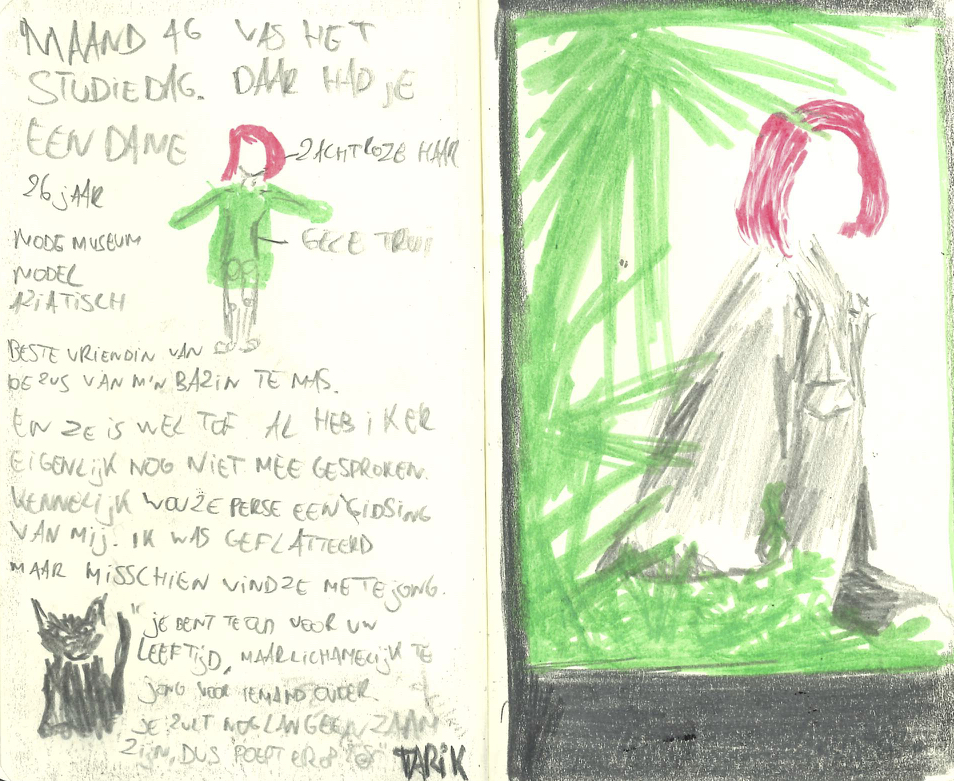 MAAND 46 WAS HET
STUDIEDAG. DAAR HAD JE
EEN DAME
ZACHT ROZE HAAR
26 JAAR
MODE MUSEUM
GELE TRUI
MODEL
AZIATISCH
BESTE VRIENDIN VAN
DE ZUS VAN M'N BAZIN TE MAS.
EN ZE IS WEL TOF AL HEB IK ER
EIGENLIJK NOG NIET MEE GESPROKEN.
KENNELIJK WOU ZE PERSE EEN GIDSING
VAN MIJ. IK WAS GEFLATTEERD
MAAR MISSCHIEN VIND ZE ME TE JONG.
"JE BENT TE OUD VOOR UW
LEEFTIJD, MAAR LICHAMELIJK TE
JONG VOOR IEMAND OUDER.
JE ZULT NOG LANG EENZAAM
ZIJN, DUS POEPT ER OP
TARIK